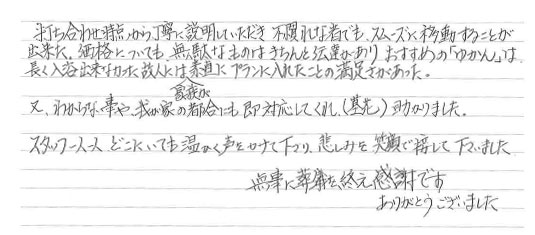 打ち合わせ時点から丁寧に説明していただき 不慣れな者でも、スムーズに移動することが
出来た。価格についても、無駄なものはきちんと伝達があり おすすめの「ゆかん」は
長く入浴出来なかった故人には素直にプランに入れたことの満足さがあった。
又、わからない事や、我が家の都合にも即対応してくれ、助かりました。
スタッフ一人一人 どこにいても温かく声をかけて下さり、悲しみを 笑顔で接して下さいました
無事に葬儀を終え感謝です
ありがとうございました